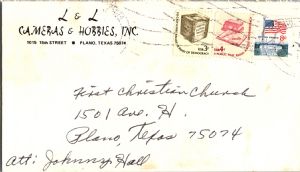 L & L
CAMERAS & HOBBIES, INC.
1015 15th STREET • PLANO, TEXAS 75074
3¢
4¢
First Christian Church
1501 Ave. H.
Plano, Texas 75074
Att: Johnny Hall